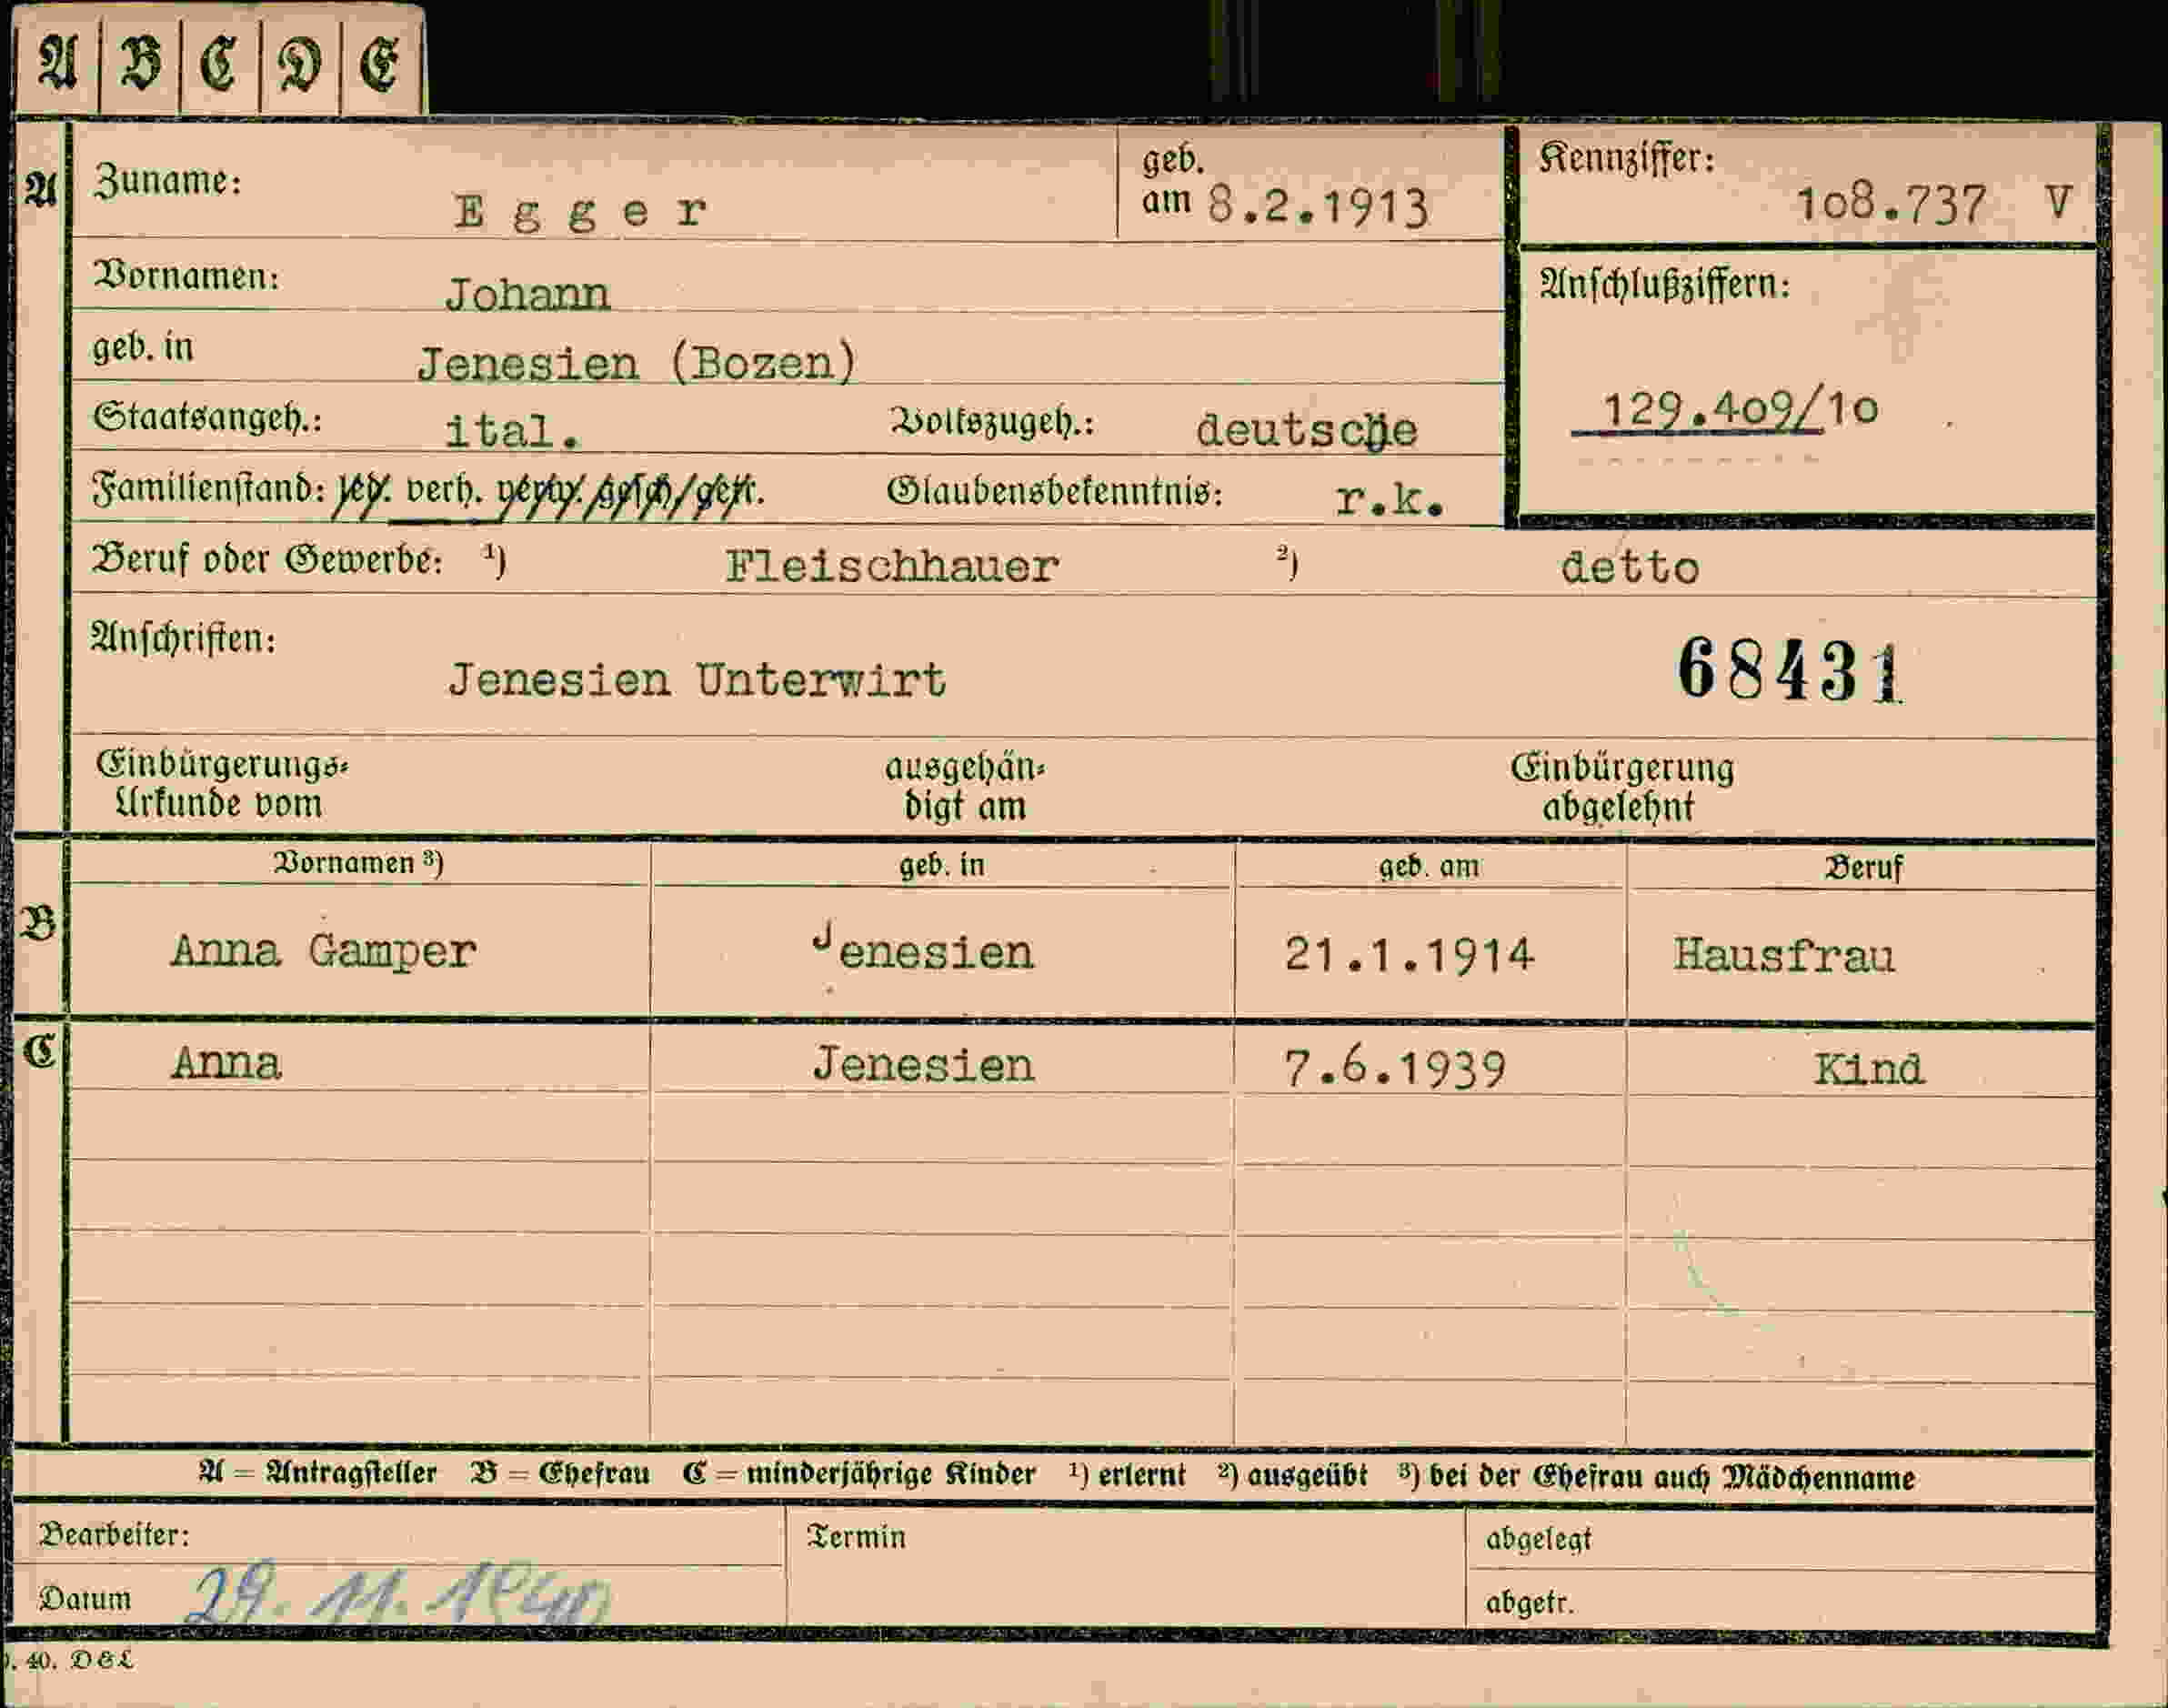 A B C D E
A Zuname: Egger geb. am 8.2.1913 Kennziffer: 108.737 V
Vornamen: Johann Anschlußziffern:
geb. in Jenesien (Bozen)
Staatsangeh.: ital. Volkszugeh.: deutsche 129.409/10
Familienstand: led. verh. verw. gesch. getr. Glaubensbekenntnis: r.k.
Beruf oder Gewerbe: ¹) Fleischhauer ²) detto
Anschriften: Jenesien Unterwirt 68431
Einbürgerungs- ausgehän- Einbürgerung
Urkunde vom digt am abgelehnt
Vornamen ³) geb. in geb. am Beruf
B Anna Gamper Jenesien 21.1.1914 Hausfrau
C Anna Jenesien 7.6.1939 Kind
A = Antragsteller B = Ehefrau C = minderjährige Kinder ¹) erlernt ²) ausgeübt ³) bei der Ehefrau auch Mädchenname
Bearbeiter: Termin abgelegt
Datum 29. 11. 1940 abgetr.
. 40. D&L